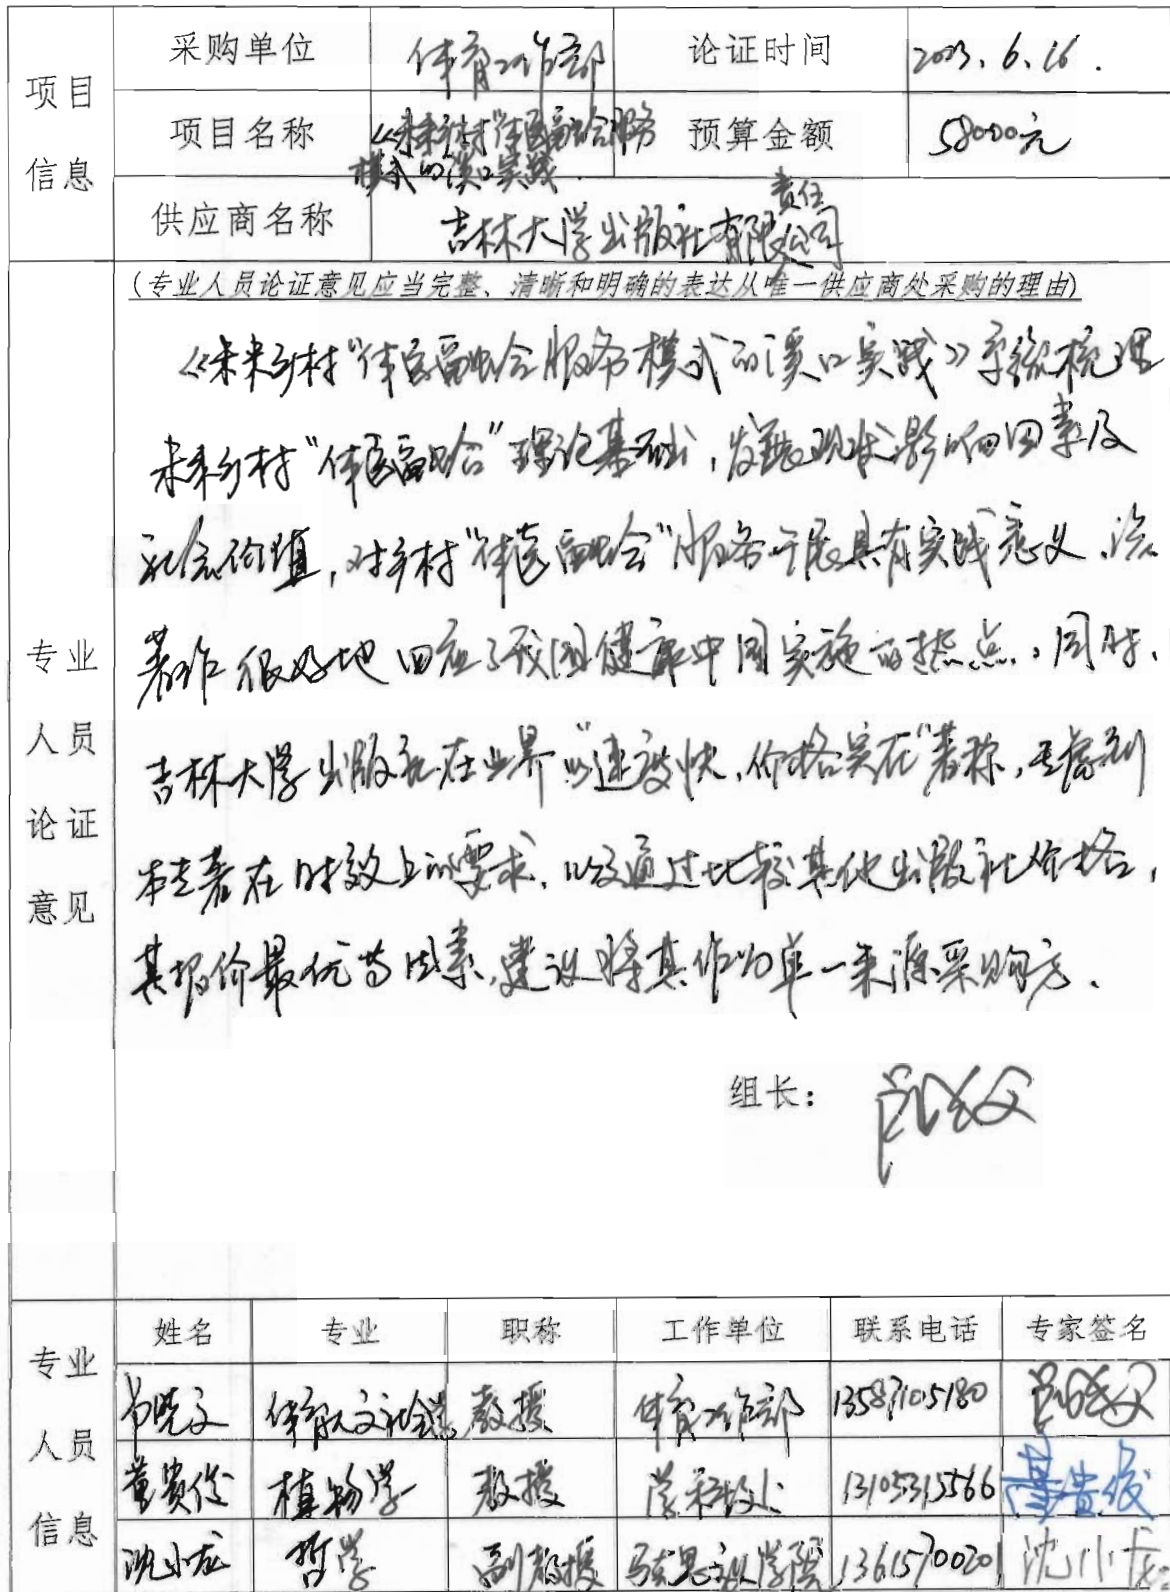 项目信息
采购单位 体育工作部 论证时间 2023.6.16.
项目名称 《未来乡村"体医融合"服务模式的溪口实践 预算金额 58000元
供应商名称 吉林大学出版社有限责任公司
(专业人员论证意见应当完整、清晰和明确的表达从唯一供应商处采购的理由)
专业人员论证意见
《未来乡村"体医融合服务模式的溪口实践》系统梳理
未来乡村"体医融合"理论基础,发展现状影响因素及
社会价值,对乡村"体医融合"服务开展具有实践意义.该
著作很好地回应了我国健康中国实施的热点.同时,
吉林大学出版社在业界以"速度快,价格实在"著称,考虑到
本专著在时效上的要求,以及通过比较其他出版社价格,
其报价最优等因素,建议将其作为单一来源采购方.
组长:
专业人员信息
姓名 专业 职称 工作单位 联系电话 专家签名
体育人文社会学 教授 体育工作部 13587105180
董贵俊 植物学 教授 13105315566 董贵俊
沈小龙 哲学 副教授 马克思主义学院 13615700201 沈小龙